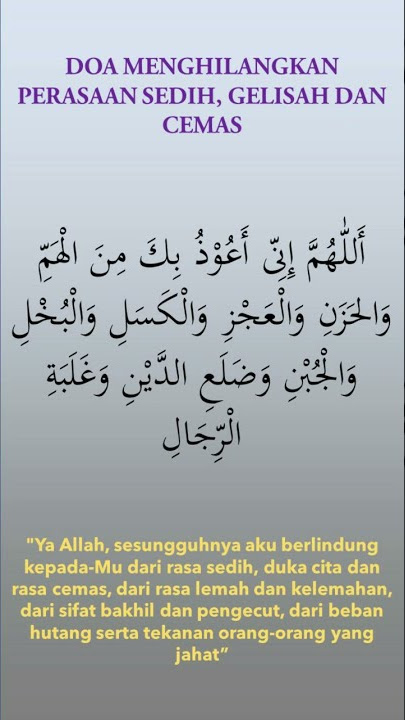 DOA MENGHILANGKAN
PERASAAN SEDIH, GELISAH DAN
CEMAS
أَللّٰهُمَّ إِنِّي أَعُوْذُ بِكَ مِنَ الْهَمِّ
وَالحَزَنِ وَالْعَجْزِ وَالْكَسَلِ وَالْبُخْلِ
وَالْجُبْنِ وَضَلَعِ الدَّيْنِ وَغَلَبَةِ
الْرِّجَالِ
"Ya Allah, sesungguhnya aku berlindung
kepada-Mu dari rasa sedih, duka cita dan
rasa cemas, dari rasa lemah dan kelemahan,
dari sifat bakhil dan pengecut, dari beban
hutang serta tekanan orang-orang yang
jahat”